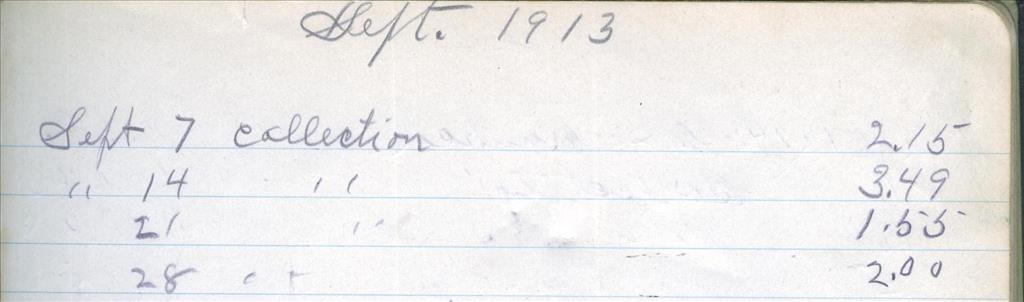 Sept. 1913
Sept 7 collection 2.15
" 14 " 3.49
21 " 1.55
28 " 2.00